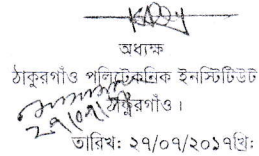 অধ্যক্ষ
ঠাকুরগাঁও পলিটেকনিক ইনস্টিটিউট
ঠাকুরগাঁও।
২৭/০৭/১৭
তারিখ: ২৭/০৭/২০১৭খ্রি: